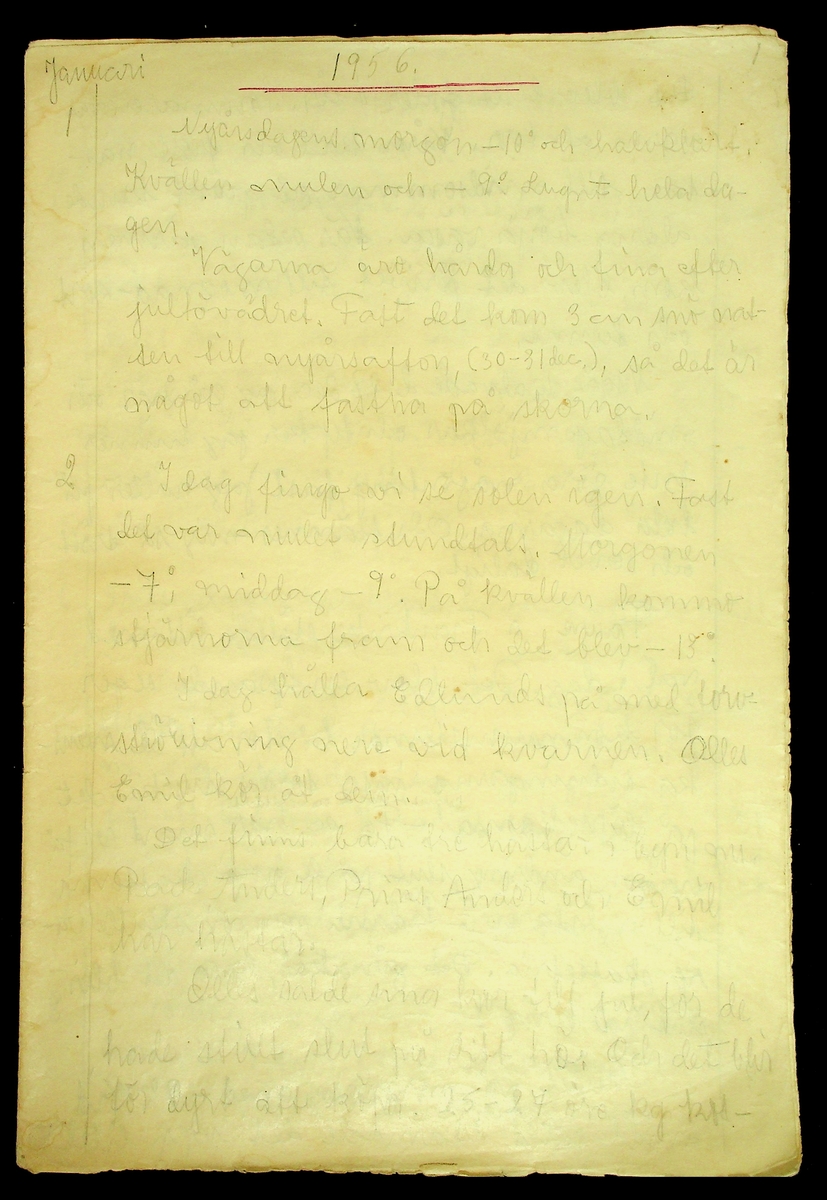 Januari 1956. 1
1 Nyårsdagens morgon -10° och halvklart.
Kvällen mulen och -9°. Lugnt hela da-
gen.
Vägarna äro hårda och fina efter
jultövädret. Fast det kom 3 cm snö nat-
ten till nyårsafton, (30-31 dec.), så det är
något att fastna på skorna.
2 I dag fingo vi se solen igen. Fast
det var mulet stundtals. Morgonen
-7°, middag -9°. På kvällen kommo
stjärnorna fram och det blev -15°.
I dag hålla Edlunds på med torv-
strörivning nere vid kvarnen. Olles
Emil kör åt dem.
Det finns bara tre hästar i byn nu.
Anders, Prins och Emil
har hästar.
Olles sålde sina till jul, för de
hade slut på sitt hö. Och det blir
för dyrt att köpa. 25-27 öre kg